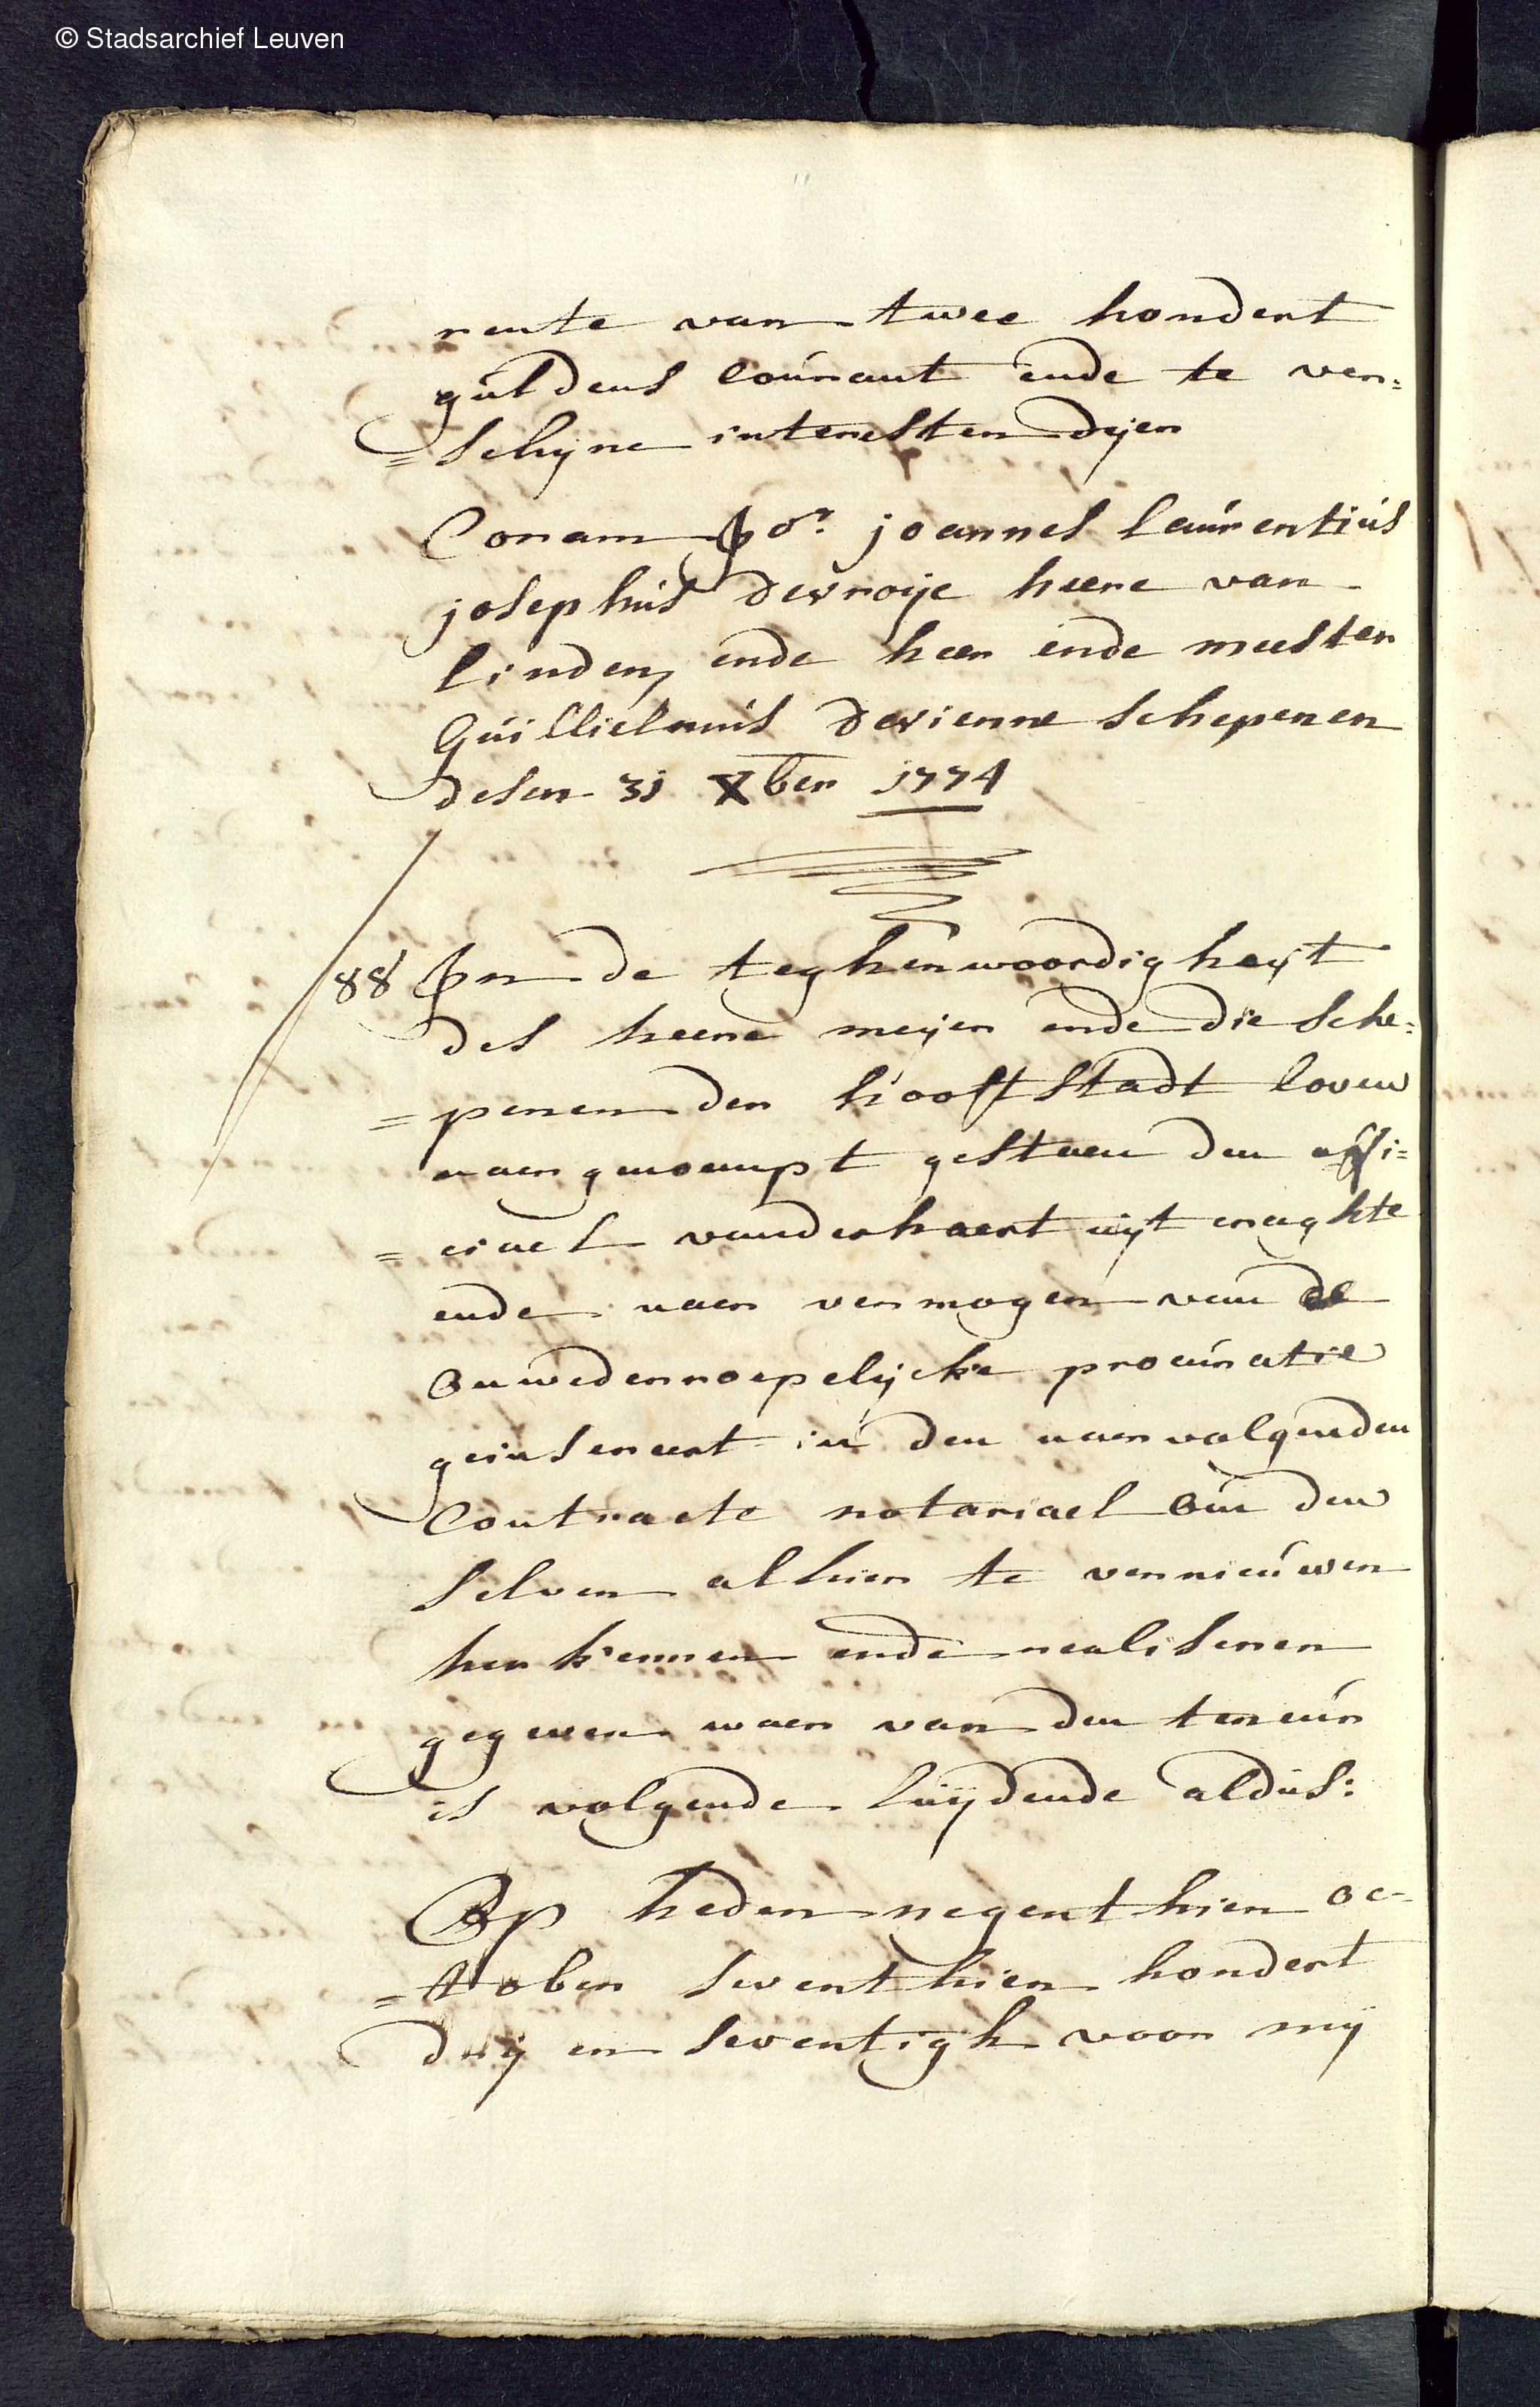 © Stadsarchief Leuven
rente van twee hondert
guldens courant ende te ver:
=schijne interesten dijen
Coram Jor. joannes laurentius
josephus devroije heere van
linden, ende heer ende meester
Guillielmus devienne schepenen
desen 31 Xber 1774
88 In de teghenwoordigheijt
des heere meijer ende die sche:
=penen der hooftstadt loven
naergenoempt gestaen den offi:
=ciael vanderhaert uijt craghte
ende naer vermogen van de
onwederroepelijcke procuratie
geinsereert in den naervolgenden
Contracte notariael om den
selven alhier te vernieuwen
herkennen ende realiseren
gegeven waer van den teneur
is volgende luijdende aldus:
Op heden negenthien oc-
=tober seventhien hondert
drij en seventigh voor mij